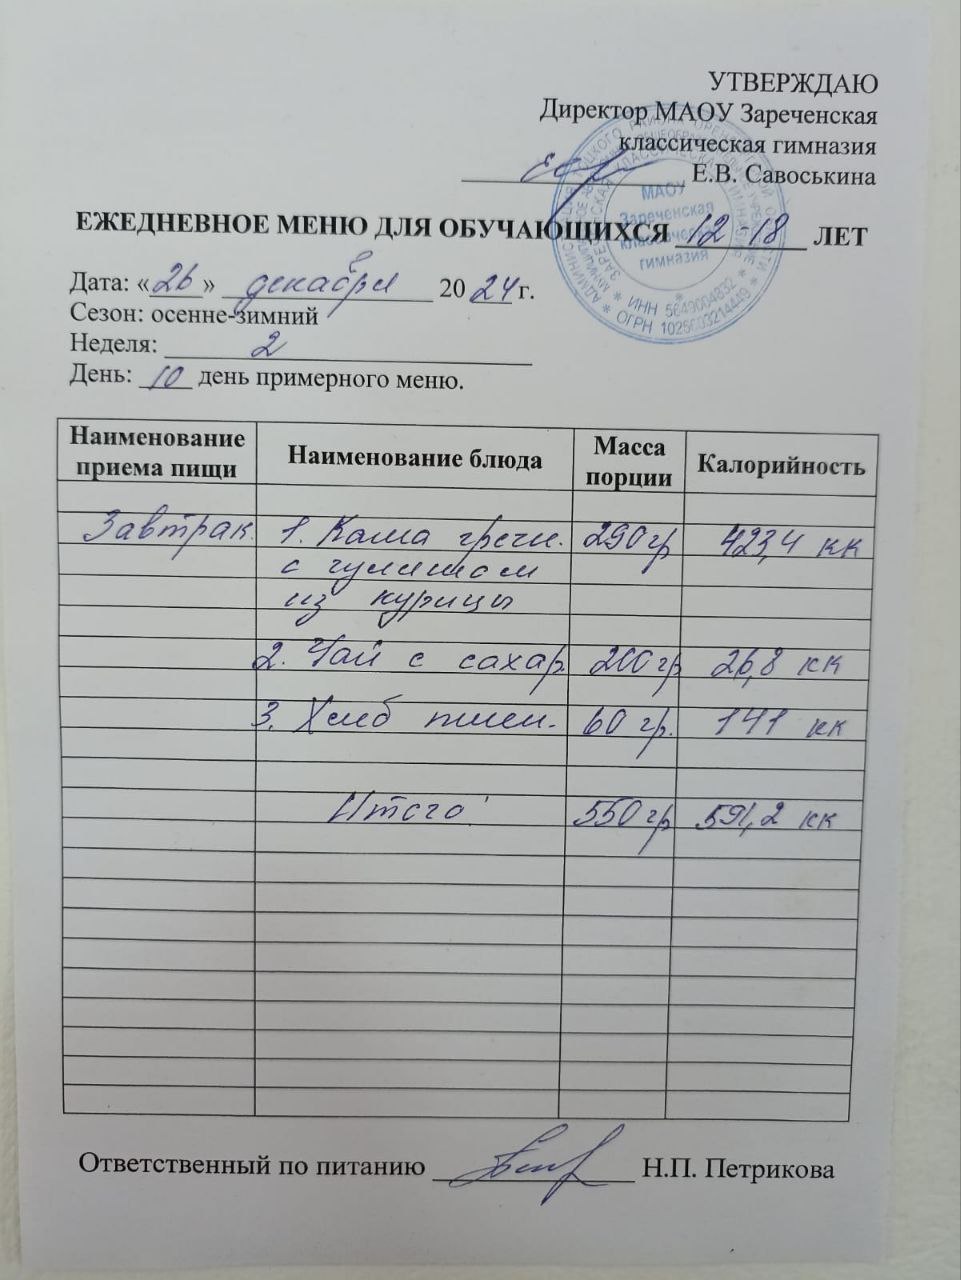 УТВЕРЖДАЮ
Директор МАОУ Зареченская
классическая гимназия
Е.В. Савоськина
МАОУ
Зареченская
классическая
гимназия
* ИНН 5649004832 *
* ОГРН 1025603214449 *
ЕЖЕДНЕВНОЕ МЕНЮ ДЛЯ ОБУЧАЮЩИХСЯ 12-18 ЛЕТ
Дата: «26» декабря 2024 г.
Сезон: осенне-зимний
Неделя: 2
День: 10 день примерного меню.
Наименование приема пищи Наименование блюда Масса порции Калорийность
Завтрак 1. Каша гречн. 290 гр 423,4 кк
с гуляшом
из курицы
2. Чай с сахар. 200 гр 26,8 кк
3. Хлеб пшен. 60 гр. 141 кк
Итого: 550 гр 591,2 кк
Ответственный по питанию Н.П. Петрикова